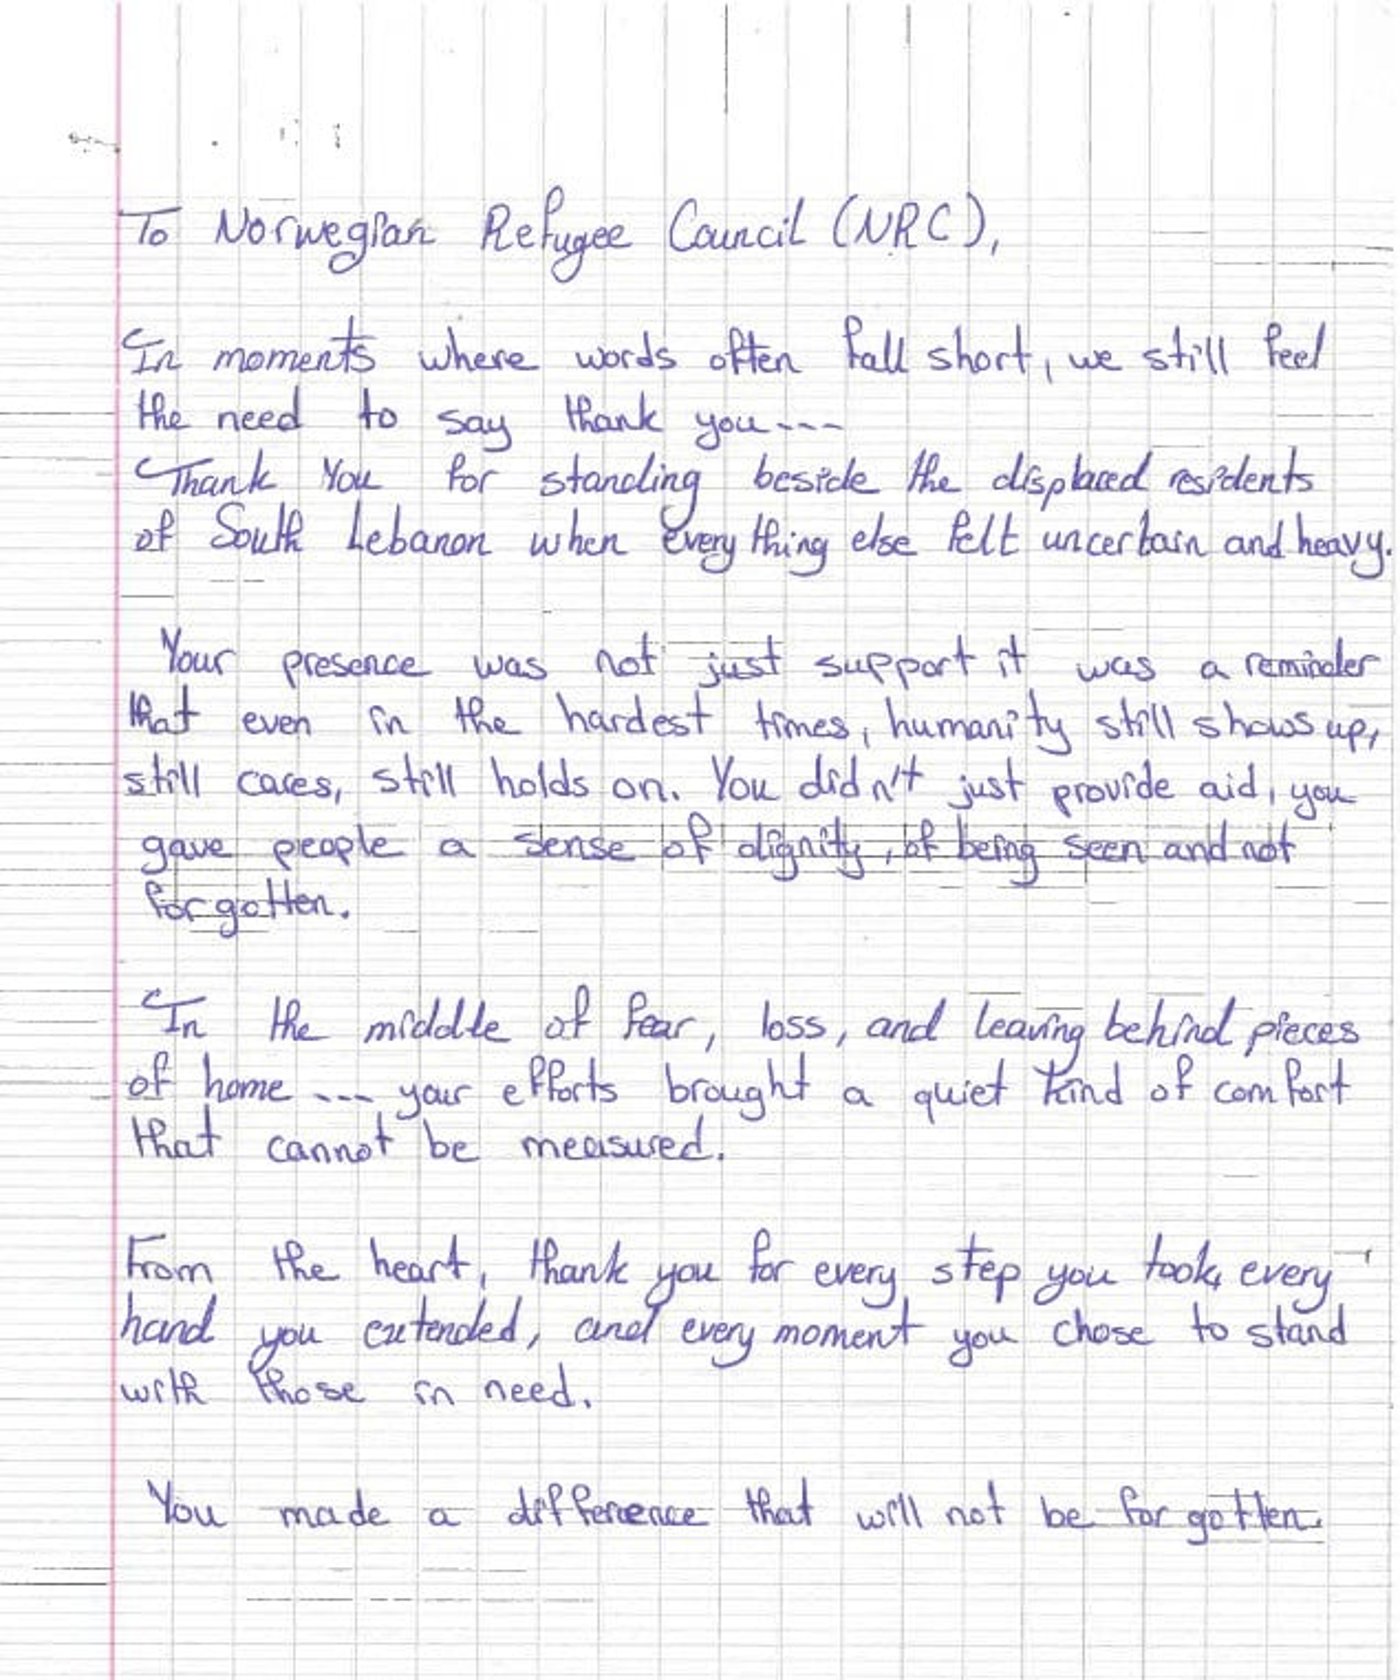 To Norwegian Refugee Council (NRC),
In moments where words often fall short, we still feel
the need to say thank you---
Thank You for standing beside the displaced residents
of South Lebanon when everything else felt uncertain and heavy.
Your presence was not just support it was a reminder
that even in the hardest times, humanity still shows up,
still cares, still holds on. You didn't just provide aid, you
gave people a sense of dignity, of being seen and not
forgotten.
In the middle of fear, loss, and leaving behind pieces
of home --- your efforts brought a quiet kind of comfort
that cannot be measured.
From the heart, thank you for every step you took, every
hand you extended, and every moment you chose to stand
with those in need.
You made a difference that will not be forgotten.